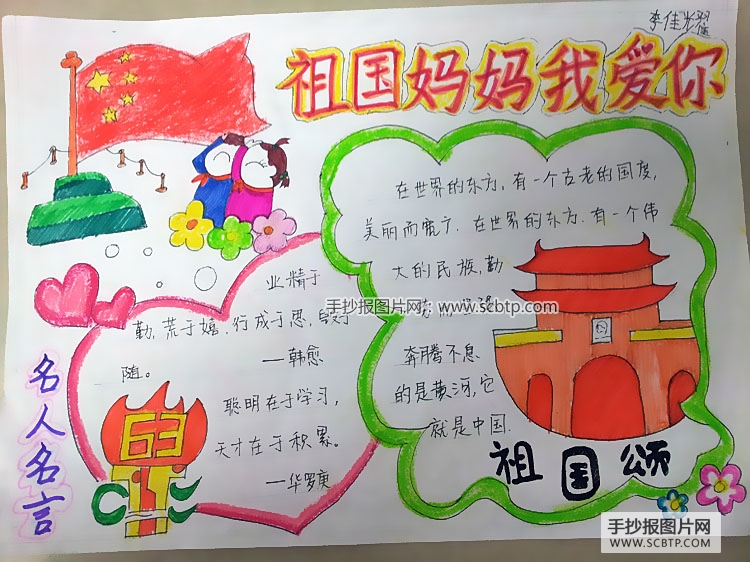 李佳
祖国妈妈我爱你
在世界的东方,有一个古老的国度,
美丽而宽广.在世界的东方.有一个伟
大的民族,勤
奔腾不息
的是黄河,它
就是中国.
祖国颂
业精于
勤,荒于嬉.行成于思,毁于
随。
—韩愈
聪明在于学习,
天才在于积累。
—华罗庚
名人名言
63
手抄报图片网:www.scbtp.com
手抄报图片网
WWW.SCBTP.COM